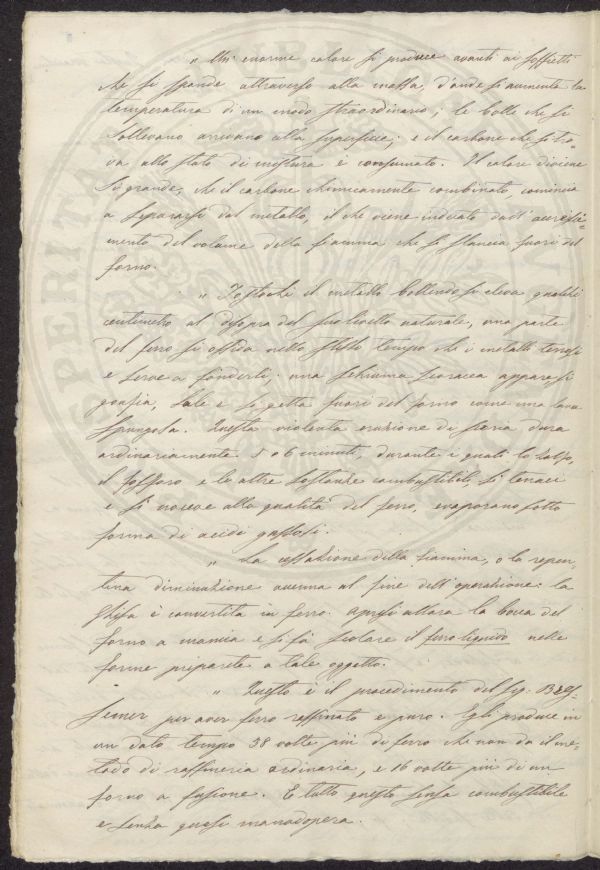 „ Un enorme calore si produce avanti ai soffietti
che si spande attraverso alla massa, d'onde si aumenta la
temperatura di un modo straordinario; le bolle che si
sollevano arrivano alla superficie; e il carbone che si tro-
va allo stato di mistura è consumato. Il calore diviene
sì grande, che il carbone chimicamente combinato, comincia
a separarsi dal metallo, il che viene indicato dall' accresci-
mento del volume della fiamma che si slancia fuori del
forno.
„ Tostochè il metallo bollendo si eleva qualche
centimetro al disopra del suo livello naturale, una parte
del ferro si ossida nello stesso tempo che i metalli terrosi
e serve a fonderli; una schiuma scoriacea apparesi
gonfia, sale e si getta fuori del forno come una lava
spungosa. Questa violenta eruzione di scoria dura
ordinariamente 5 o 6 minuti, durante i quali lo zolfo,
il fosforo e le altre sostanze combustibili, sì tenaci
e sì nocive alla qualità del ferro, evaporano sotto
forma di acidi gassosi.
„ La cessazione della fiamma, o la repen-
tina diminuzione accenna al fine dell' operazione: la
ghisa è convertita in ferro. Apresi allora la bocca del
forno a mancia e si fà scolare il ferro liquido nelle
forme preparate a tale oggetto.
„ Questo è il procedimento del Sig. Bes-
semer per aver ferro raffinato e puro. Egli produce in
un dato tempo 38 volte più di ferro che non dà il me-
todo di raffineria ordinaria, e 16 volte più di un
forno a fusione. E tutto questo senza combustibile
e senza quasi manodopera.